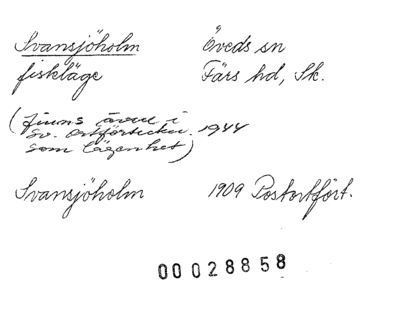 Svansjöholm Öveds sn
fiskläge Färs hd, Sk.
(finns även i
Sv. Ortförteckn. 1944
som lägenhet)
Svansjöholm 1909 Postortfört.
00028858